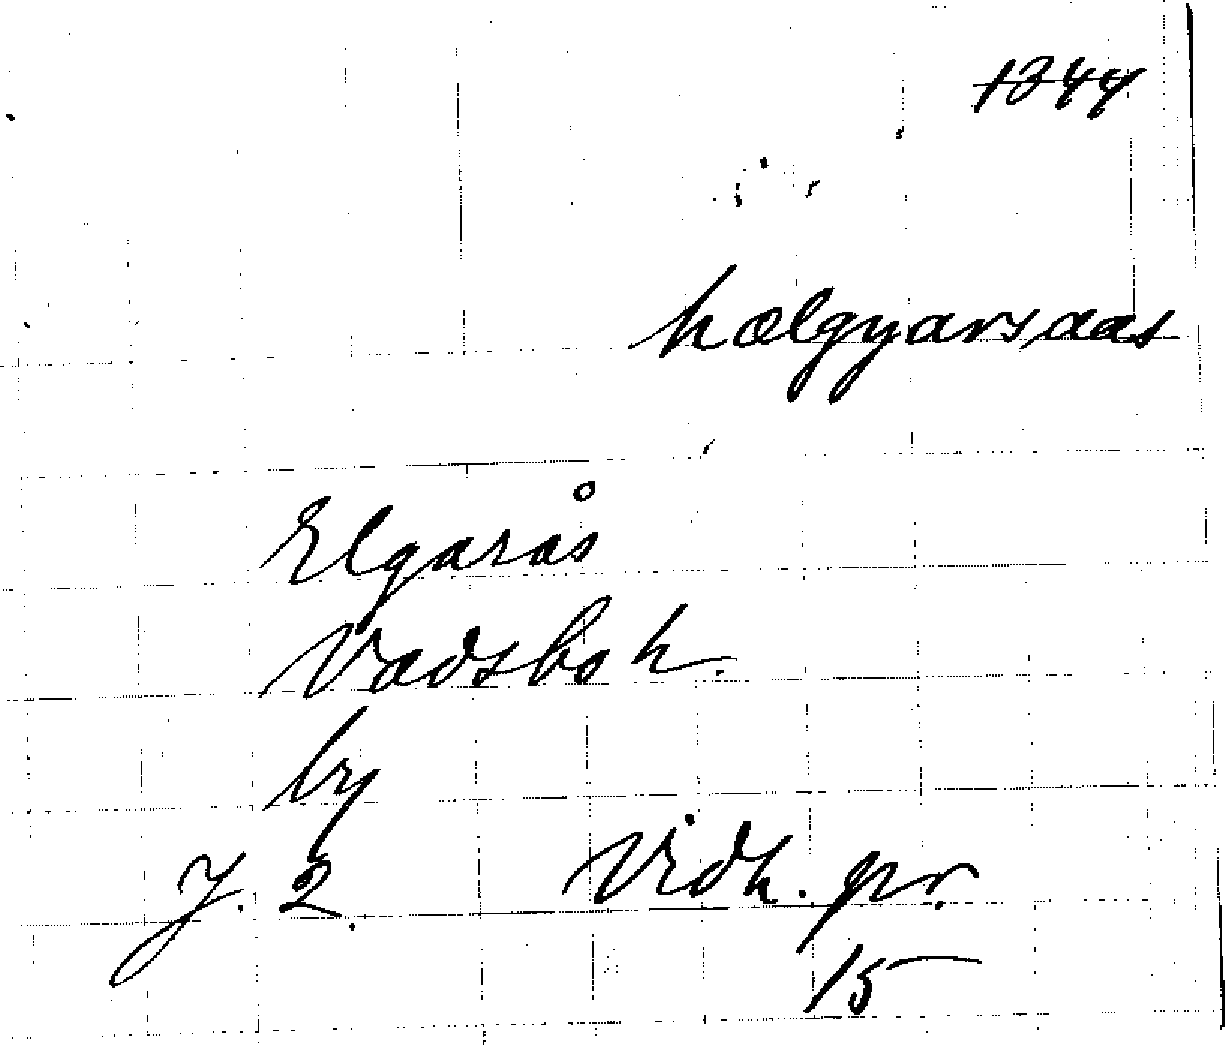 1344
hælgyarsaas
Elgarås
Vadsbo h.
by
J. 2. Vidh. pr.
15